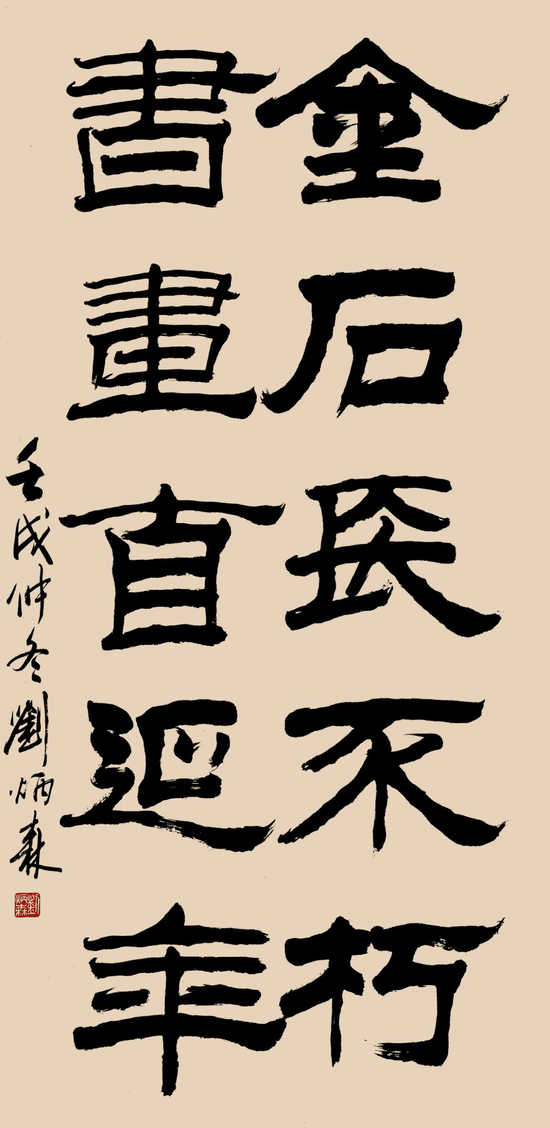 金石長不朽
書畫百延年
壬戌仲冬劉炳森